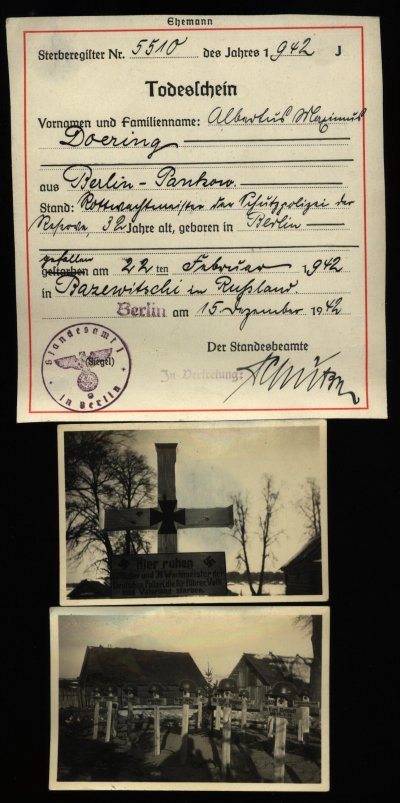 Ehemann
Sterberegister Nr. 5510 des Jahres 1942 J
Todesschein
Vornamen und Familienname: Albertus Maximus
Doering
aus Berlin-Pankow.
Stand: Rottwachtmeister der Schutzpolizei der
Reserve, 32 Jahre alt, geboren in Berlin
gefallen
gestorben am 22ten Februar 1942
in Bazewitschi in Rußland.
Berlin am 15. Dezember 1942
Standesamt 1
(Siegel)
in Berlin
Der Standesbeamte
In Vertretung:
Hier ruhen
und Wachtmeister der
Deutschen Polizei, die für Führer, Volk
und Vaterland starben.